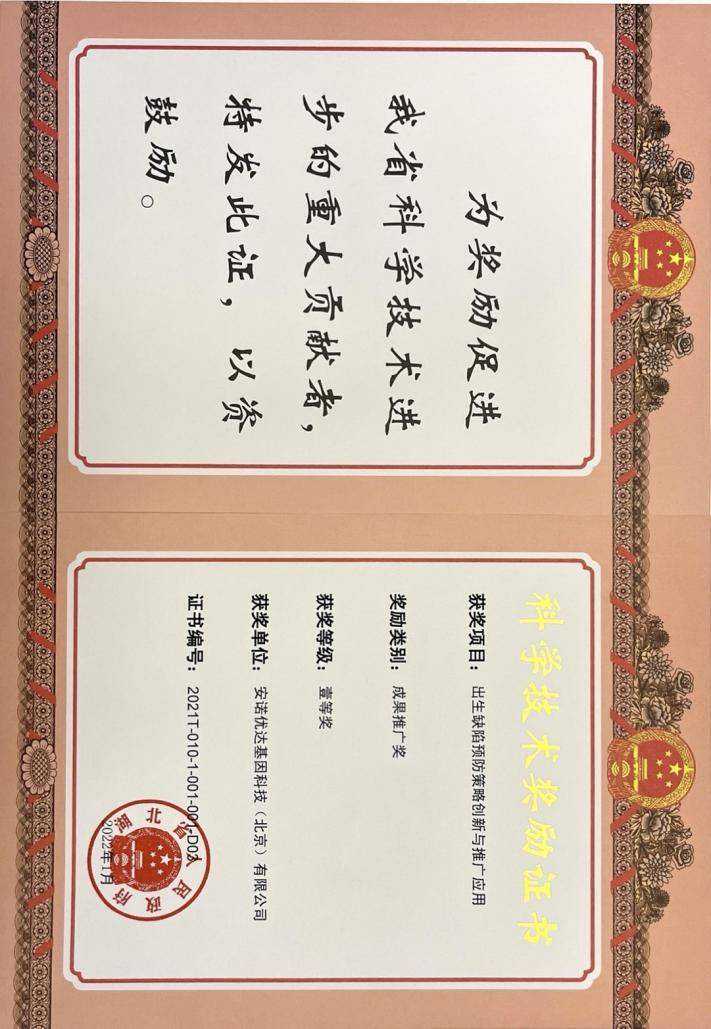 为奖励促进
我省科学技术进
步的重大贡献者，
特发此证，以资
鼓励。
科学技术奖励证书
获奖项目：出生缺陷预防策略创新与推广应用
奖励类别：成果推广奖
获奖等级：壹等奖
获奖单位：安诺优达基因科技（北京）有限公司
证书编号：2021T-010-1-001-001-D03
湖北省人民政府
2022年1月